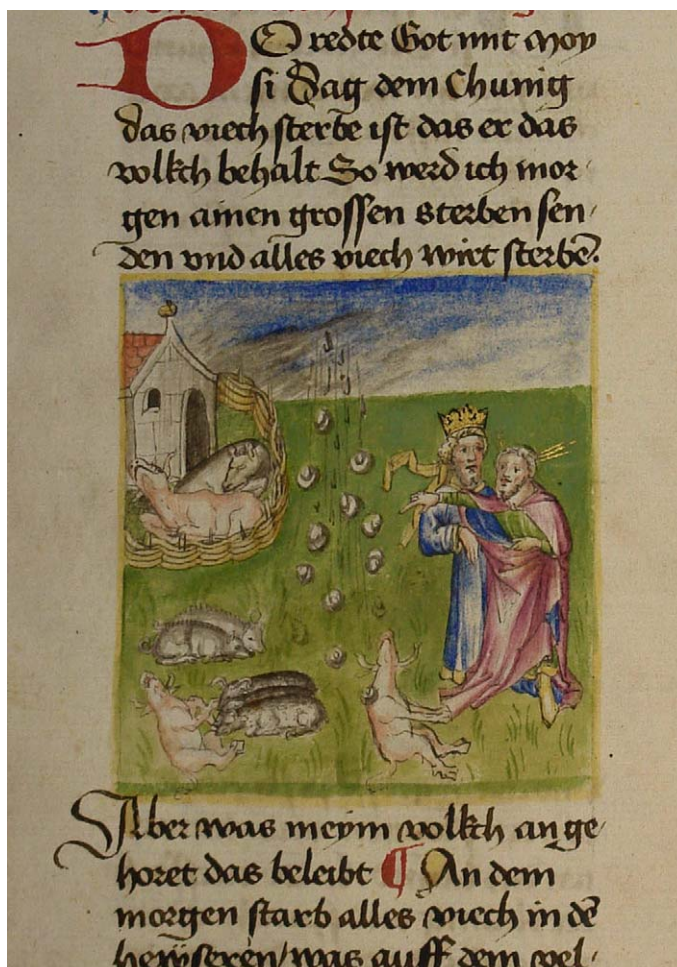 DO redte Got mit Moy
si Sag dem Chunig
das viech sterbe ist das er das
volkch behalt So werd ich mor
gen ainen grossen sterben sen
den vnd alles viech wirt sterbē.
Aber was meim volkch ange
horet das beleibt ¶ An dem
morgen starb alles viech in dē
hewseren/ was auff dem vel